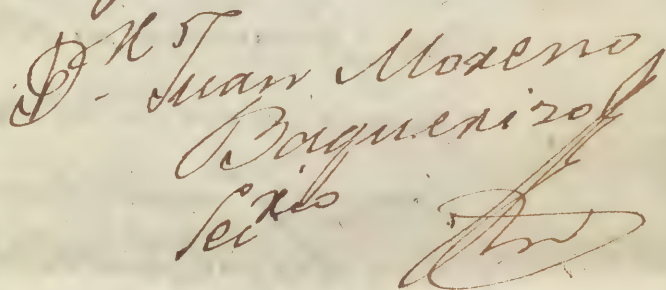 D.n Juan Moreno
Baquerizo
Sec.rio